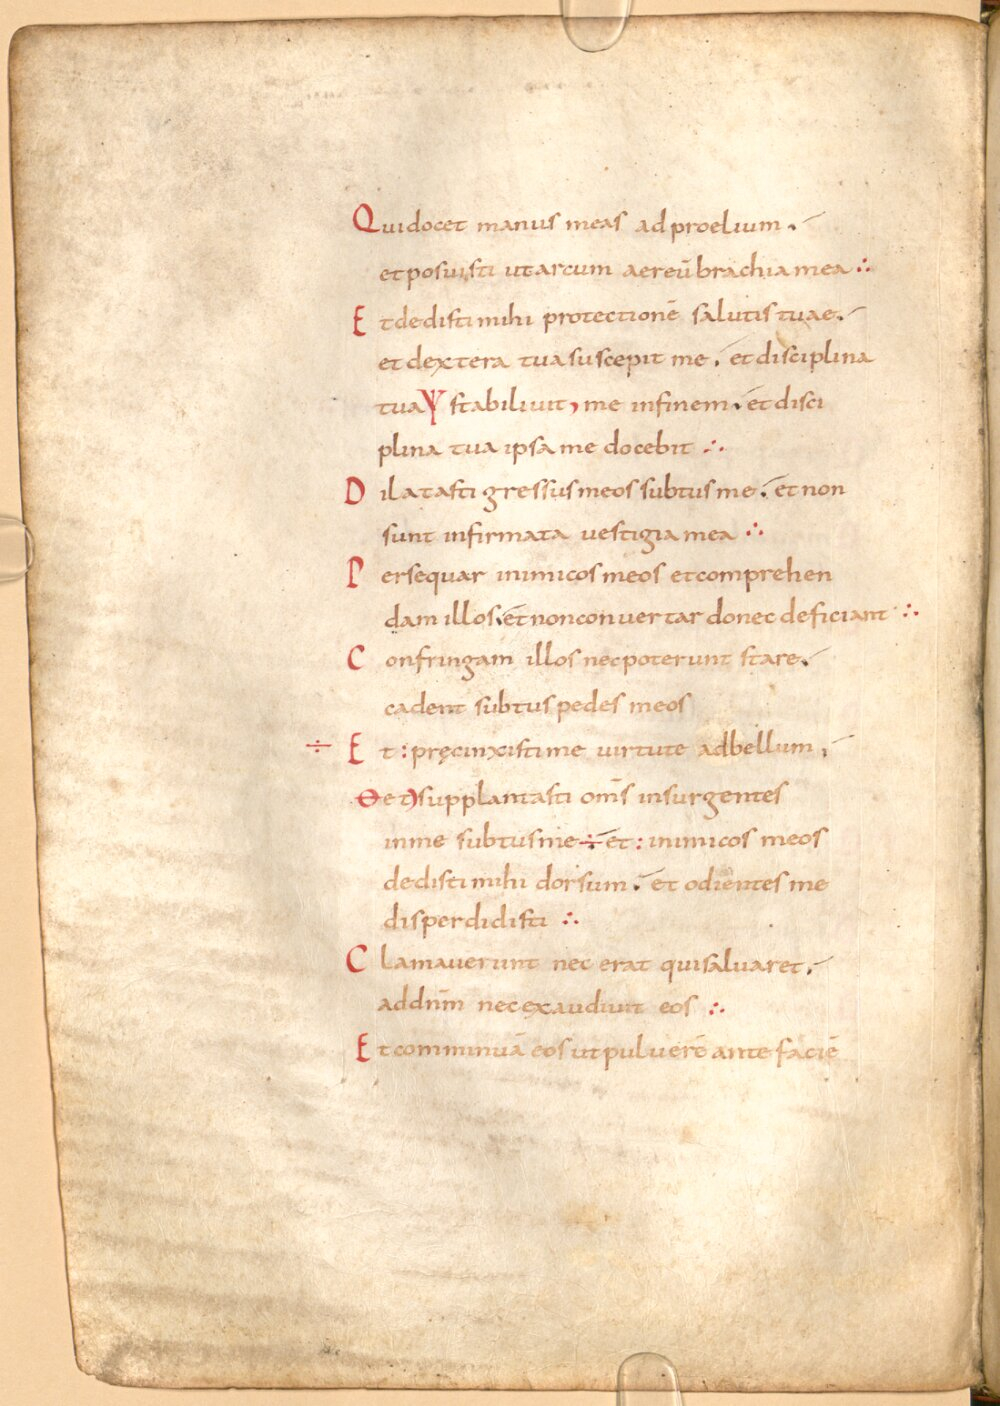 Qui docet manus meas ad proelium.
et posuisti ut arcum aereū brachia mea ∴
Et dedisti mihi protectionē salutis tuae.
et dextera tua suscepit me. et disciplina
tua stabiliuit, me in finem. et disci
plina tua ipsa me docebit ∴
Dilatasti gressus meos subtus me. et non
sunt infirmata vestigia mea ∴
Persequar inimicos meos et comprehen
dam illos. et non convertar donec deficiant ∴
Confringam illos nec poterunt stare.
cadent subtus pedes meos
÷ Et : pręcinxisti me virtute ad bellum.
et supplantasti om̄s insurgentes
in me subtus me ÷ et : inimicos meos
dedisti mihi dorsum. et odientes me
disperdidisti ∴
Clamauerunt nec erat qui saluaret.
ad dn̄m nec exaudiuit eos ∴
Et comminuā eos ut puluerē ante faciē